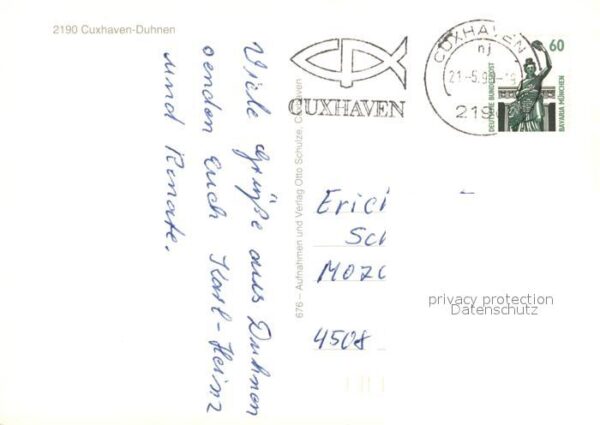 2190 Cuxhaven-Duhnen
Viele Grüße aus Duhnen
senden Euch Karl-Heinz
und Renate.
676 – Aufnahmen und Verlag Otto Schulze, Cuxhaven
CUXHAVEN
CUXHAVEN
nj
21.-5.9
219
60
DEUTSCHE BUNDESPOST
BAVARIA MÜNCHEN
Erich
Sch
MOZA
4508
privacy protection
Datenschutz